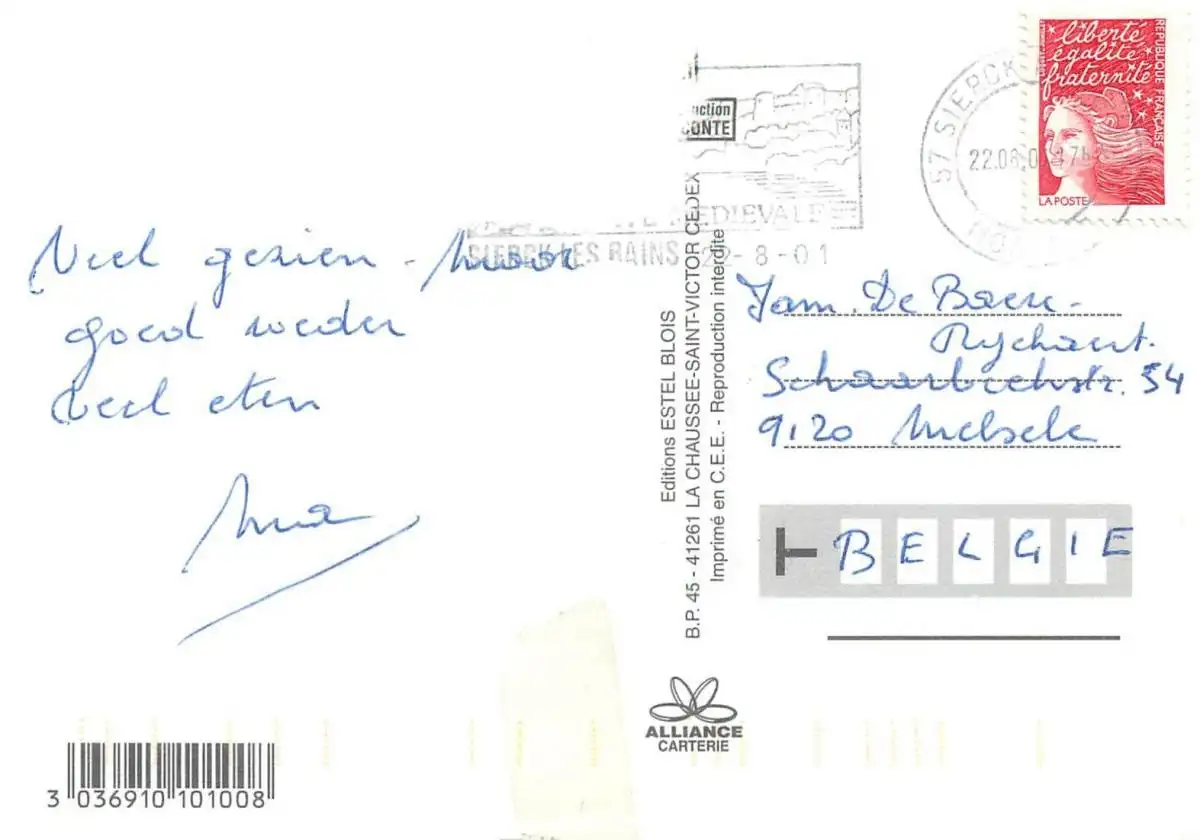 Veel gezien - Mooi
goed weder
veel eten
liberté
égalité
fraternité
REPUBLIQUE FRANÇAISE
LA POSTE
57 SIERCK
22.08.0
MEDIEVALE
SIERCK LES BAINS 22-8-01
uction
CONTE
Editions ESTEL BLOIS
B.P. 45 - 41261 LA CHAUSSEE-SAINT-VICTOR CEDEX
Imprimé en C.E.E. - Reproduction interdite
Fam. De Baere -
Ryckaert.
54
9120 Melsele
BELGIE
ALLIANCE
CARTERIE
3 036910 101008